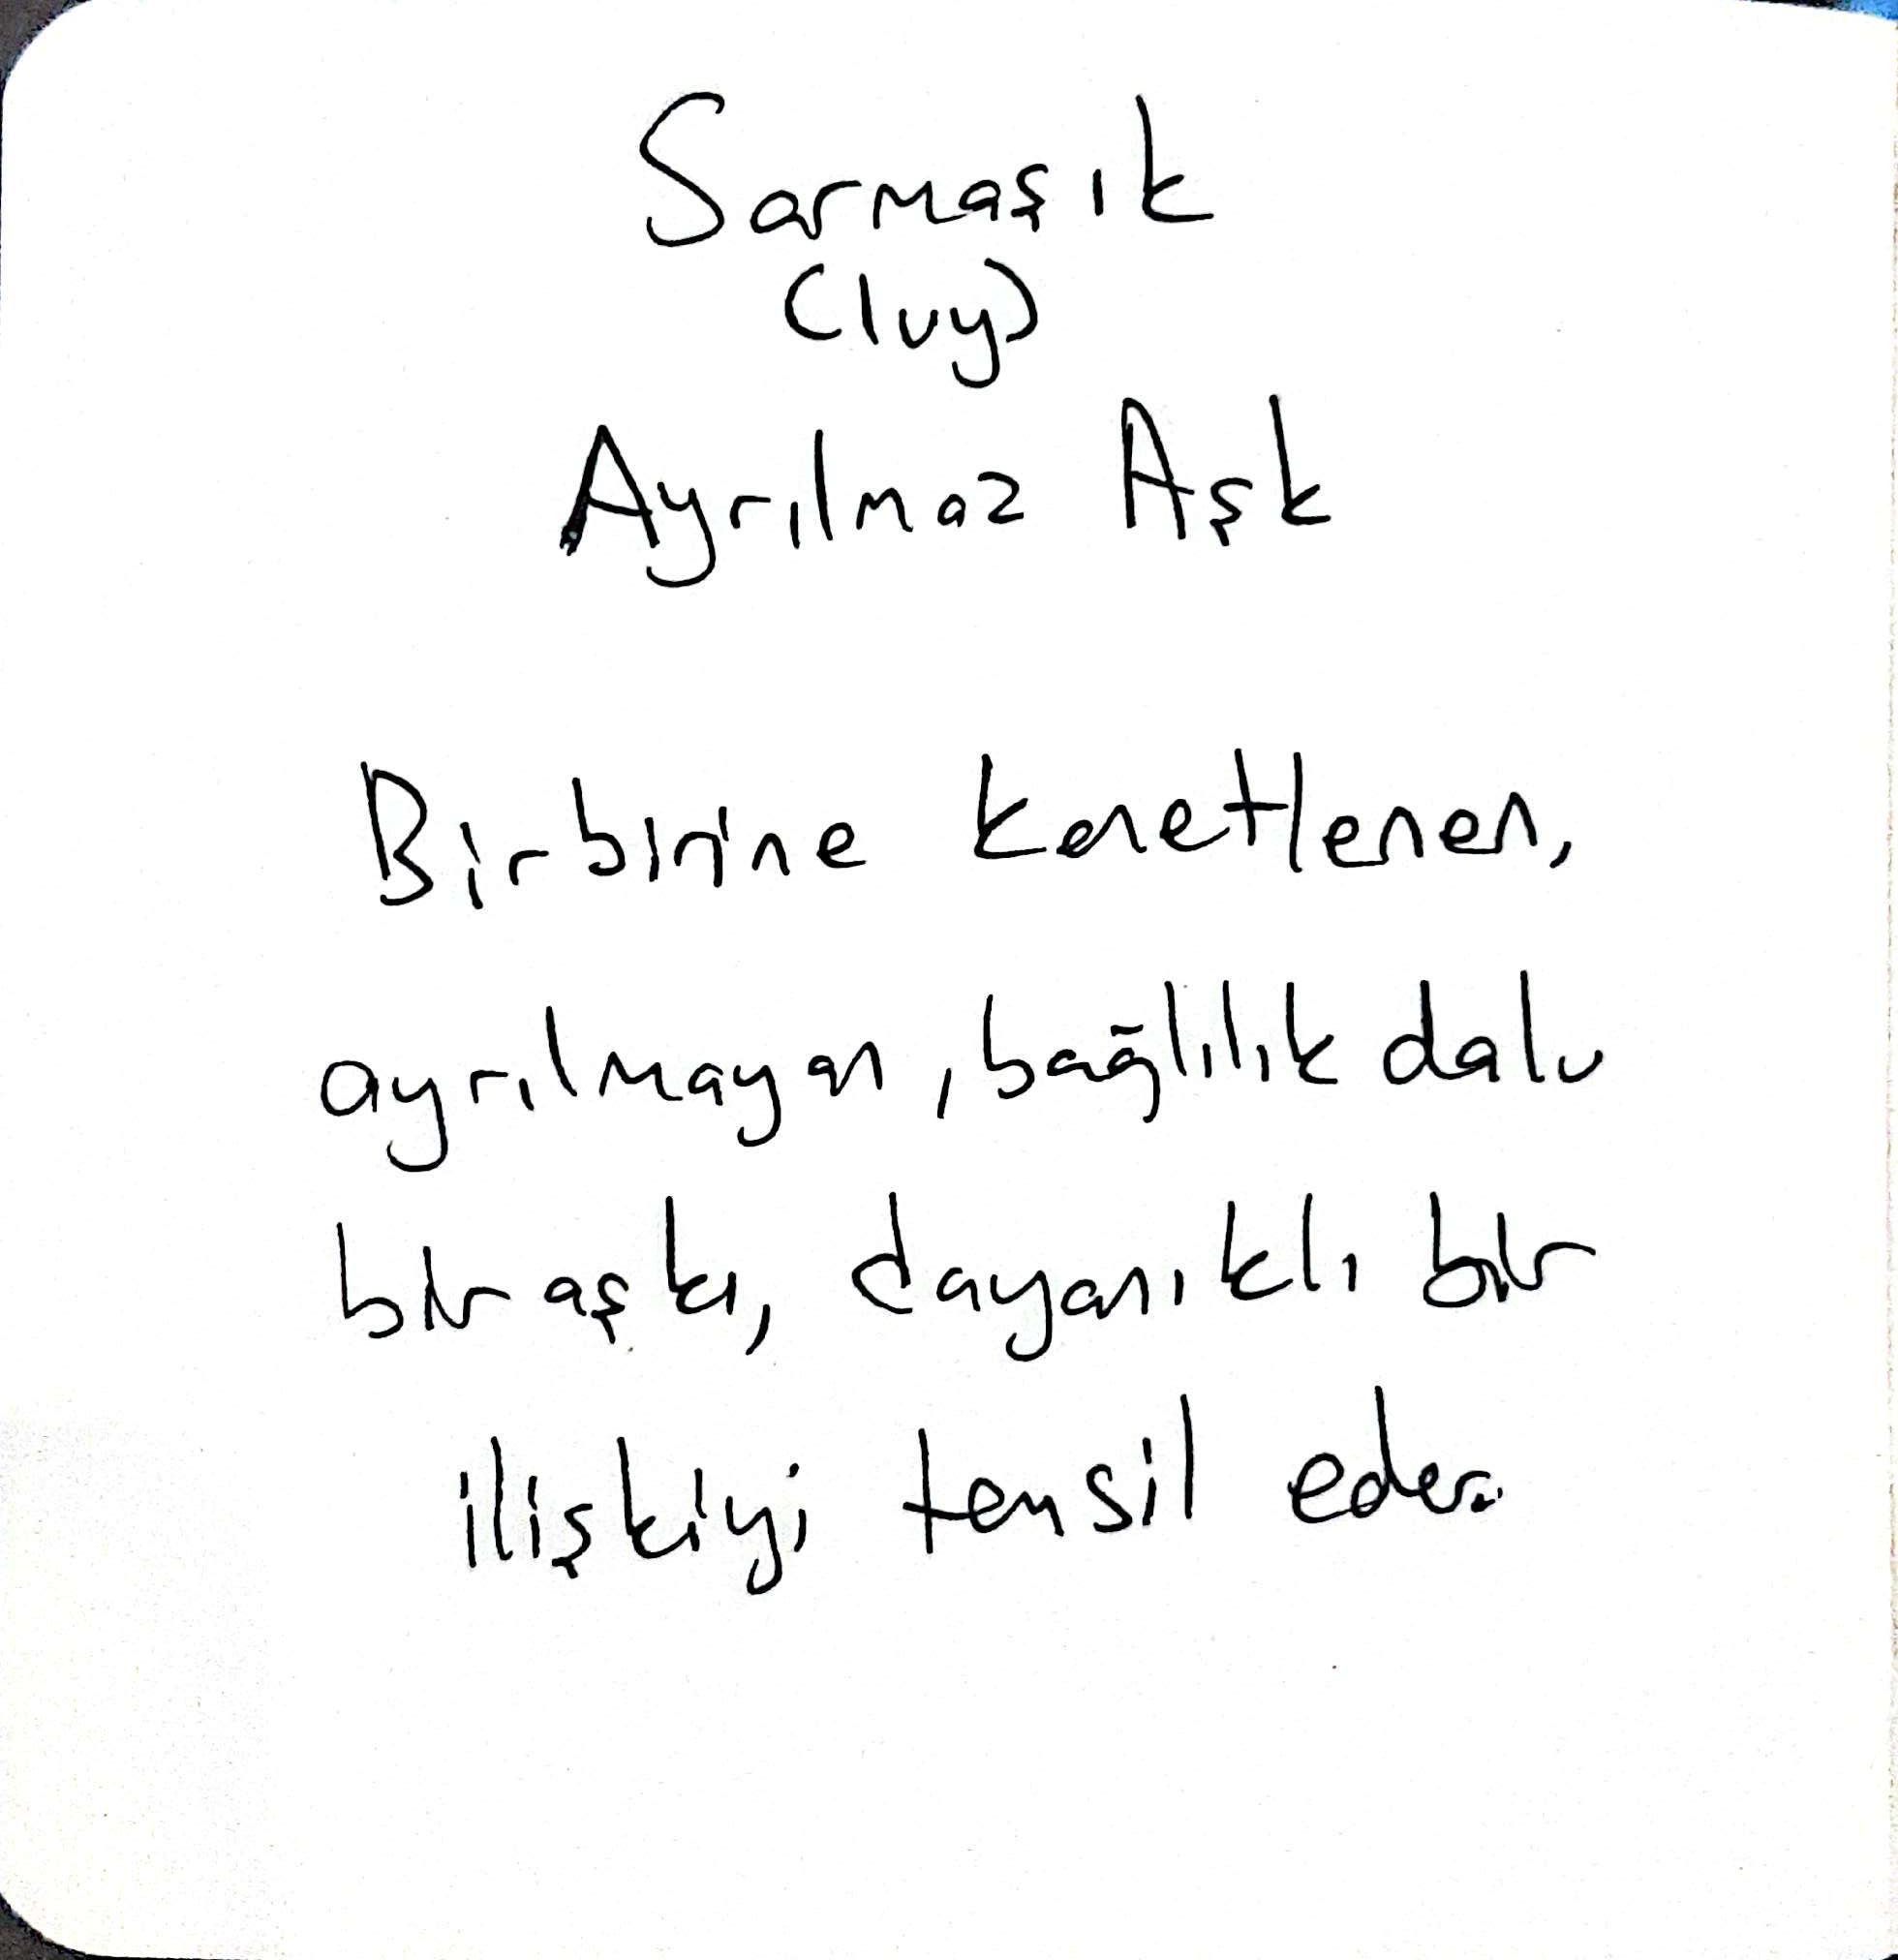 Sarmaşık
(Ivy)
Ayrılmaz Aşk
Birbirine kenetlenen,
ayrılmayan, bağlılık dalu
bir aşkı, dayanıklı bir
ilişkiyi temsil eder.